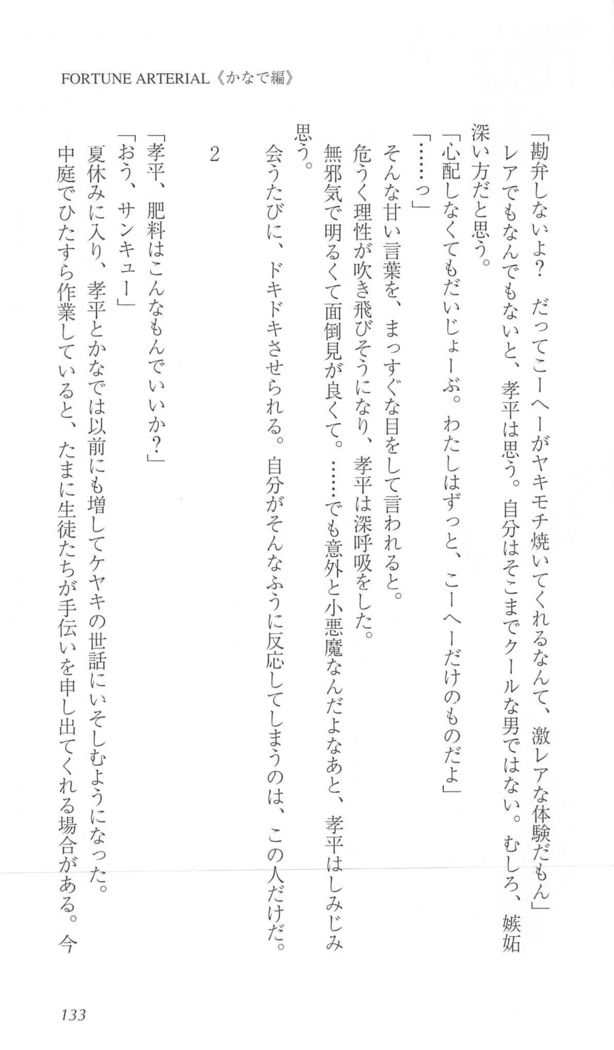 FORTUNE ARTERIAL《かなで編》
「勘弁しないよ？　だってこーへーがヤキモチ焼いてくれるなんて、激レアな体験だもん」
レアでもなんでもないと、孝平は思う。自分はそこまでクールな男ではない。むしろ、嫉妬
深い方だと思う。
「心配しなくてもだいじょーぶ。わたしはずっと、こーへーだけのものだよ」
「……っ」
そんな甘い言葉を、まっすぐな目をして言われると。
危うく理性が吹き飛びそうになり、孝平は深呼吸をした。
無邪気で明るくて面倒見が良くて。……でも意外と小悪魔なんだよなあと、孝平はしみじみ
思う。
会うたびに、ドキドキさせられる。自分がそんなふうに反応してしまうのは、この人だけだ。
2
「孝平、肥料はこんなもんでいいか？」
「おう、サンキュー」
夏休みに入り、孝平とかなでは以前にも増してケヤキの世話にいそしむようになった。
中庭でひたすら作業していると、たまに生徒たちが手伝いを申し出てくれる場合がある。今
133